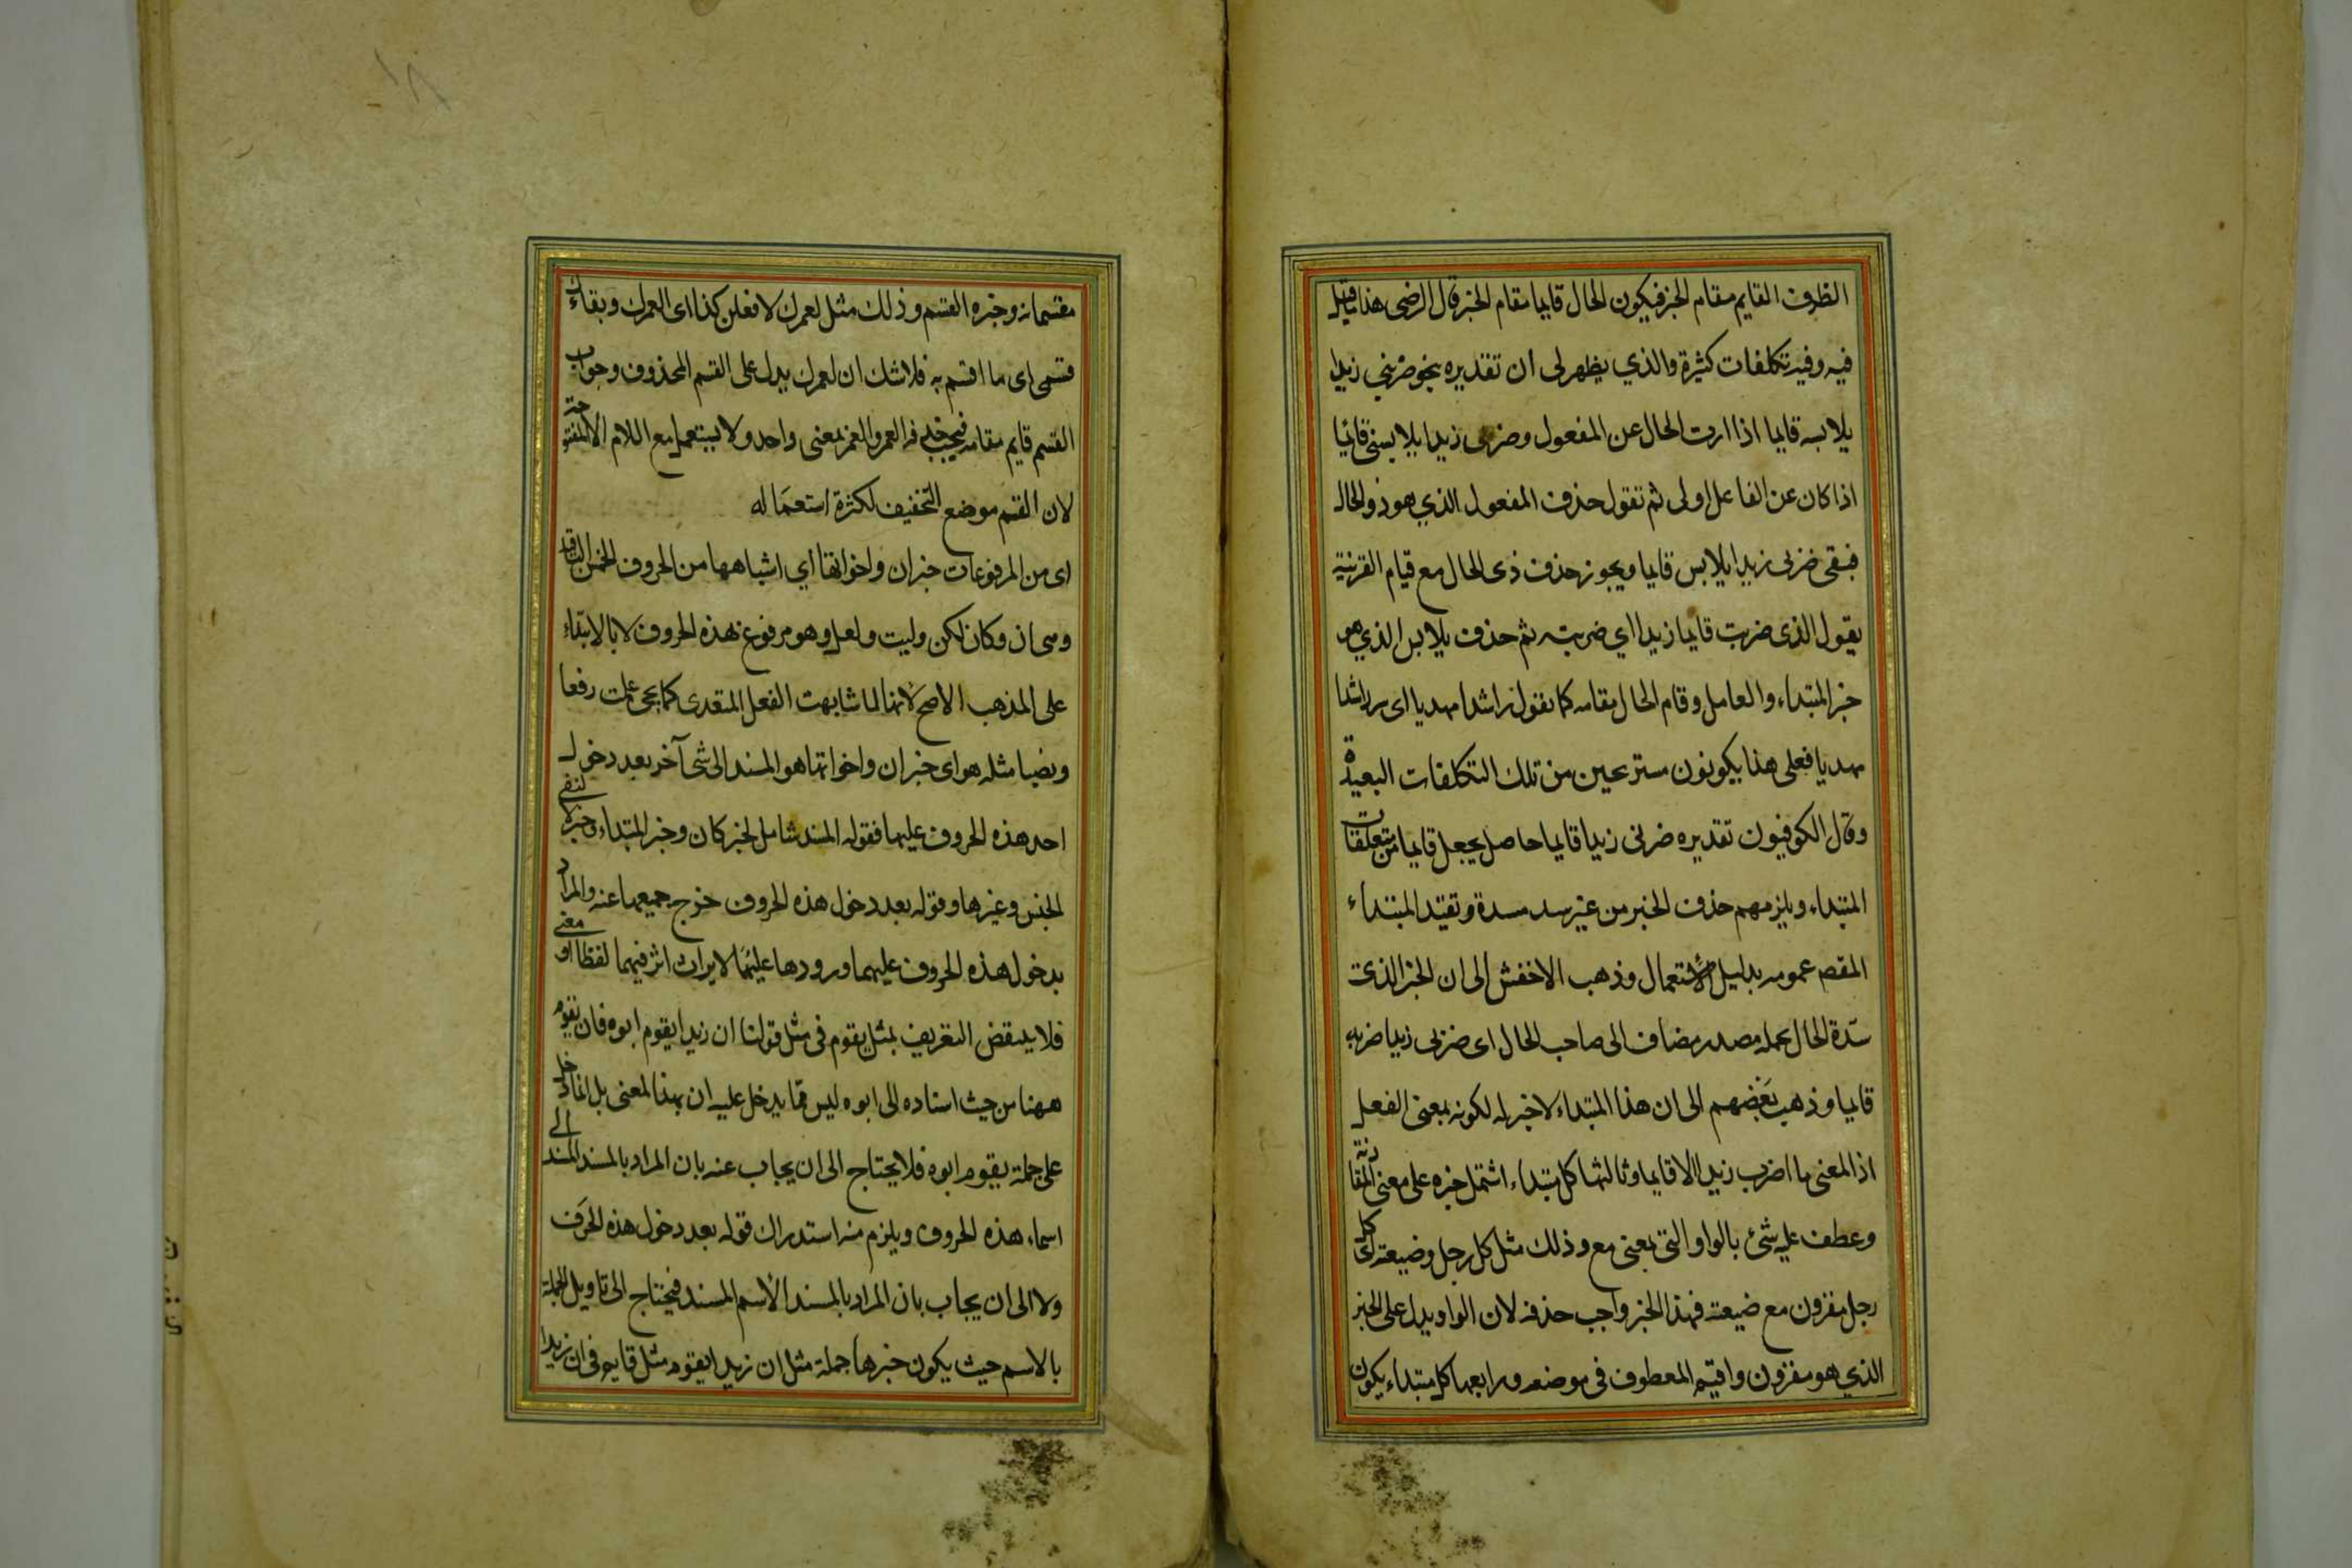 الظرف القايم مقام الخبر فيكون الحال قايما مقام الخبر قال الرضى هذا ما قيل
فيه وفيه تكلفات كثيرة والذي يظهر لى ان تقديره بنحو ضربي زيدا
يلابسه قايما اذا اردت الحال عن المفعول وضربى زيدا يلابسنى قائيا
اذا كان عن الفاعل اولى ثم تقول حذف المفعول الذي هو ذو الحال
فبقى ضربى زيدا يلابس قايما ويجوز حذف ذى الحال مع قيام القرينة
يقول الذى ضربت قايما زيدا اي ضربته ثم حذف يلابس الذي هو
خبر المبتداء والعامل وقام الحال مقامه كما تقول راشدا مهديا اى سر راشدا
مهديا فعلى هذا يكونون مستريحين من تلك التكلفات البعيدة
وقال الكوفيون تقديره ضربى زيدا قايما حاصل بجعل قايما من متعلقات
المبتداء ويلزمهم حذف الخبر من غير سد مسدة وتقيد المبتداء
المقص عمومه بدليل الاستعمال وذهب الاخفش الى ان الخبر الذى
سدة الحال محله مصدر مضاف الى صاحب الحال اى ضربى زيدا ضربه
قايما وذهب بعضهم الى ان هذا المبتداء لا خبر له لكونه بمعنى الفعل
اذ المعنى ما اضرب زيدا الا قايما وثالثها كل مبتداء اشتمل خبره على معنى المقارنة
وعطف عليه شئ بالواو التى بمعنى مع وذلك مثل كل رجل وضيعته اى كل
رجل مقرون مع ضيعته فهذا الخبر واجب حذفه لان الواو يدل على الخبر
الذي هو مقرون واقيم المعطوف فى موضعه ورابعها كل مبتداء يكون
مقسما به وخبره القسم وذلك مثل لعمرك لافعلن كذا اى لعمرك وبقاءك
قسمى اى ما اقسم به فلا شك ان لعمرك يدل على القسم المحذوف وجواب
القسم قايم مقامه فيجب حذفه والعمر والعمر بمعنى واحد ولا يستعمل مع اللام الا المفتوحة
لان القسم موضع التخفيف لكثرة استعماله
اى من المرفوعات خبر ان واخواتها اي اشباهها من الحروف الخمس الباقية
وهى ان وكان ولكن وليت ولعل وهو مرفوع بهذه الحروف لا بالابتداء
على المذهب الاصح لانها لما شابهت الفعل المتعدى كما يجى عملت رفعا
ونصبا مثله هو اى خبر ان واخواتها هو المسند الى شئ آخر بعد دخول
احد هذه الحروف عليهما فقوله المسند شامل لخبر كان وخبر المبتداء وخبر لا لنفى
الجنس وغيرها وقوله بعد دخول هذه الحروف خرج جميعها عنه والمراد
بدخول هذه الحروف عليهما ورودها عليهما لايراث اثر فيهما لفظا او معنى
فلا ينتقض التعريف بمثل يقوم فى مثل قولنا ان زيدا يقوم ابوه فان يقوم
ههنا من حيث اسناده الى ابوه ليس مما يدخل عليه ان بهذا المعنى بل انما دخل
على جملة يقوم ابوه فلا يحتاج الى ان يجاب عنه بان المراد بالمسند المسند الى
اسماء هذه الحروف ويلزم منه استدراك قوله بعد دخول هذه الحرف
ولا الى ان يجاب بان المراد بالمسند الاسم المسند فيحتاج الى تاويل الجملة
بالاسم حيث يكون خبرها جملة مثل ان زيدا يقوم مثل قايم فى ان زيدا